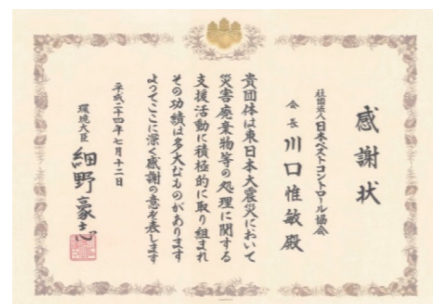 感謝状
社団法人日本ペストコントロール協会
会長 川口惟敏殿
貴団体は東日本大震災において
災害廃棄物等の処理に関する
支援活動に積極的に取り組まれ
その功績は多大なものがあります
よってここに深く感謝の意を表します
平成二十四年七月十二日
環境大臣 細野豪志